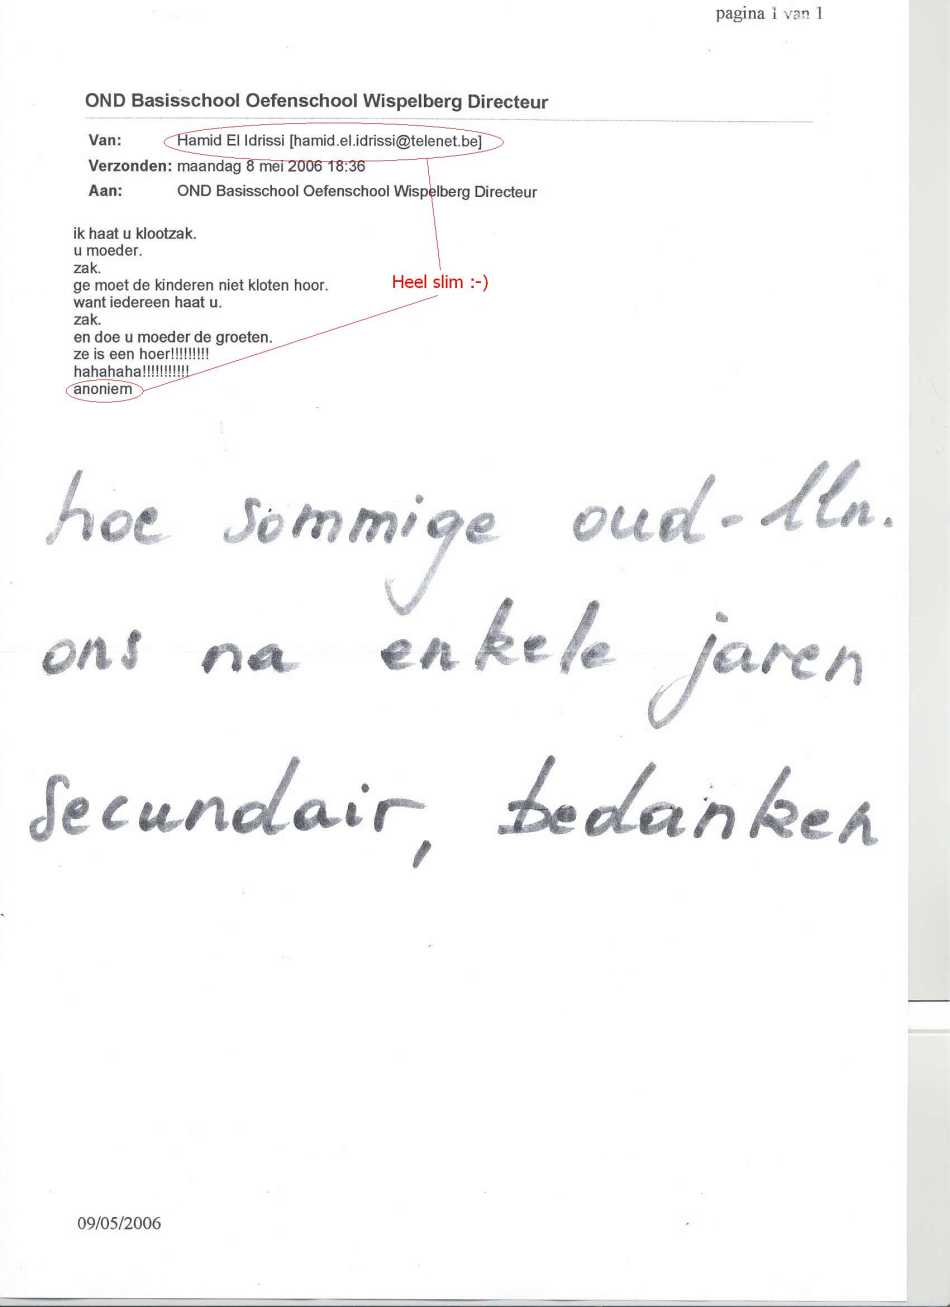 pagina 1 van 1
OND Basisschool Oefenschool Wispelberg Directeur
Van: Hamid El Idrissi [hamid.el.idrissi@telenet.be]
Verzonden: maandag 8 mei 2006 18:36
Aan: OND Basisschool Oefenschool Wispelberg Directeur
ik haat u klootzak.
u moeder.
zak.
ge moet de kinderen niet kloten hoor.
Heel slim :-)
want iedereen haat u.
zak.
en doe u moeder de groeten.
ze is een hoer!!!!!!!!!
hahahaha!!!!!!!!!!!
anoniem
hoe sommige oud-lln.
ons na enkele jaren
secundair, bedanken
09/05/2006